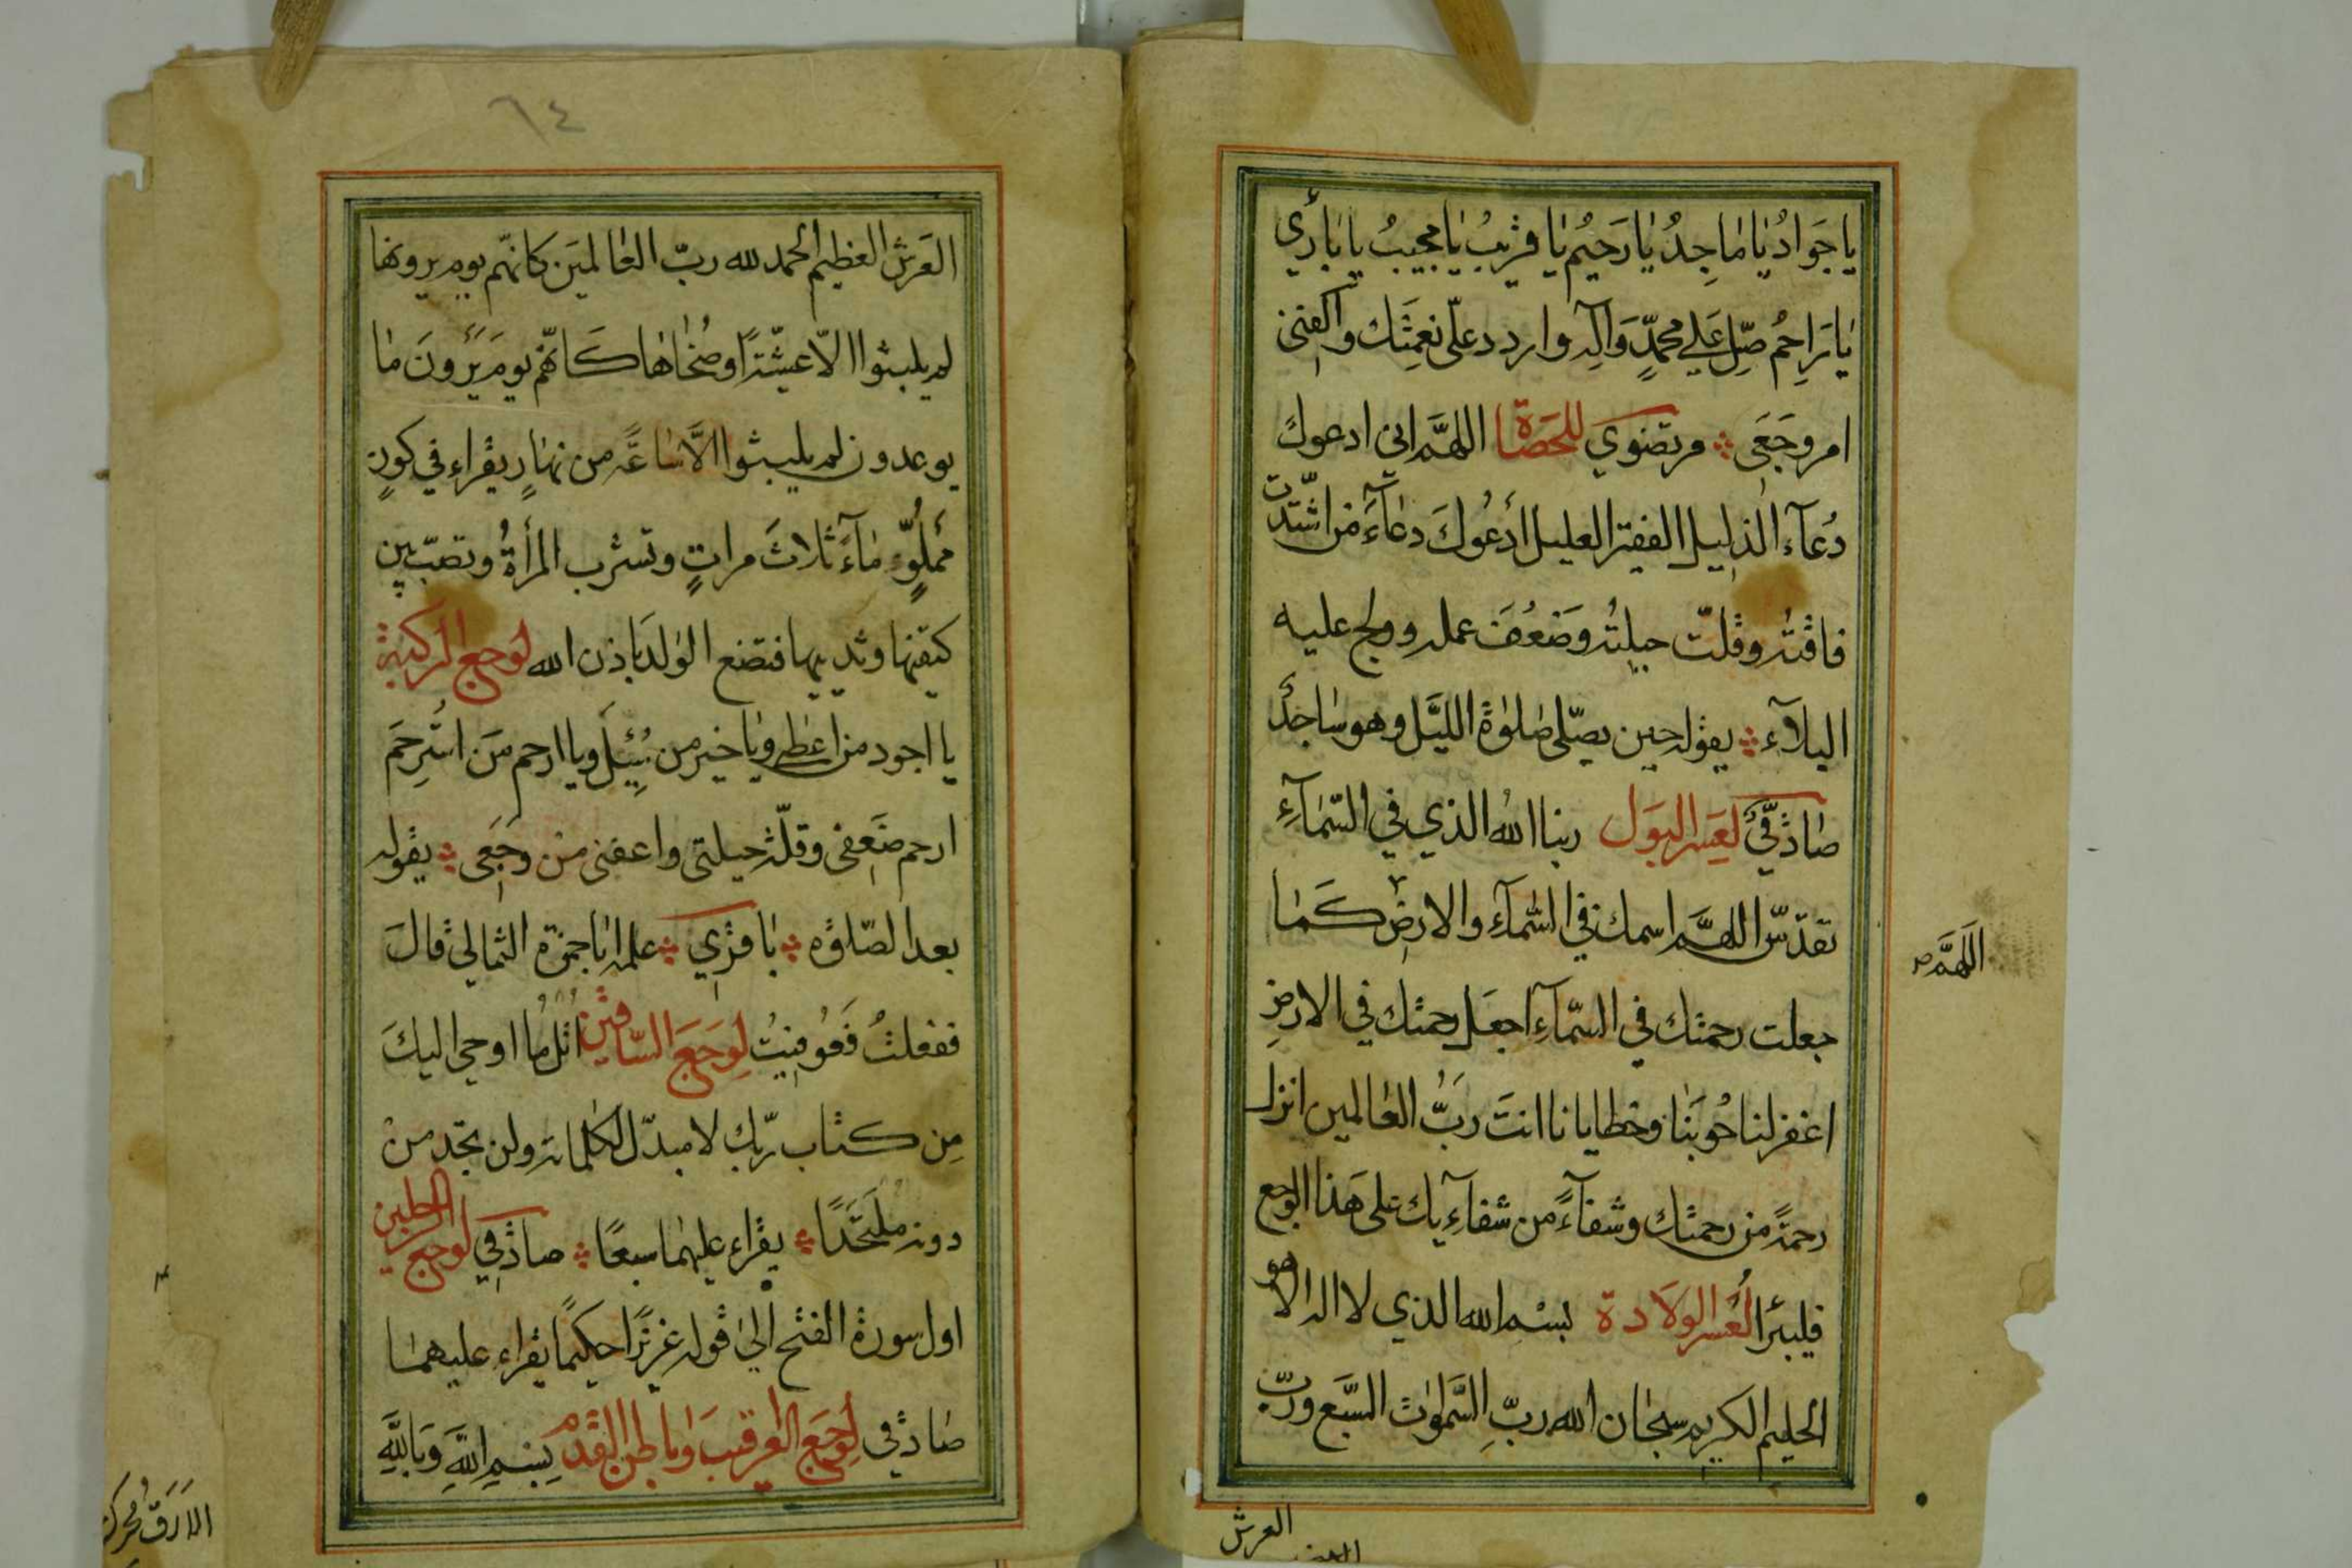 يا جَوادُ يا ماجِدُ يا رَحيمُ يا قريبُ يا مجيبُ يا بارئ
يا راحِمُ صلِّ على محمّدٍ وَآلِهِ واردد علىّ نعمتك واكفنى
امر وجَعَى مرتضوي للحَصاة اللهمّ انى ادعوك
دُعآء الذليل الفقير العليل أدعُوكَ دعآءَ من اشتدّت
فاقته وقلّت حيلته وَضَعُفَ عمله والح عليه
البلآء يقوله حين يصلّى صلوة الليَّل وهو ساجد
صادقىّ لعسر البَول ربنا الله الذي في السّمآءِ
تقدّس اللهمَّ اسمك في السّمآء والارض كَما
جعلت رحمتك في السّمآءِ اجعَل رحمتك في الارض
اغفر لنا حُوبَنا وخطايانا انتَ ربُّ العالمين انزل
رحمةً من رحمتك وشفآءً من شفآءِك على هَذا الوجع
فليبرأ لعُسر الولادة بسْم الله الذي لا اله الا هو
الحليم الكريم سبحان الله ربِّ السَّموات السّبع وربّ
اللَّهمَّ
العرش
العَرش العظيم الحمد لله ربّ العالمين كانّهم يوم يرونها
لم يلبثوا الّا عشيّة او ضحاها كَانّهم يومَ يَرَونَ ما
يوعدون لم يلبثوا الَّا ساعةً من نهارٍ يقراء في كوزٍ
مملوٍّ مآءً ثلاثَ مراتٍ وتشرب المرأة وتصبّ بين
كتفيها وثدييها فتضع الولد باذن الله لوجع الركبة
يا اجود من اعطى ويا خير من سُئِلَ ويا ارحم مَن استُرحِمَ
ارحم ضَعفى وقلّة حيلتى واعفنى من وجَعى يقوله
بعد الصّلوة باقري علمه ابا حمزة الثمالي قالَ
ففعلتُ فَعُوفيتُ لوَجَعَ السّاقين اتل ما اوحى اليكَ
مِن كتاب ربّك لا مبدّل لكلماته ولن تجد من
دونه ملتَحَدًا يقراء عليهما سبعًا صادقي لوجع الرجلين
اول سورة الفتح الى قوله عزيزًا حكيمًا يقراء عليهما
صادقي لوَجَع العرقيب وباطن القدم بِسْمِ اللَّهِ وَبِاللَّهِ
٦٤